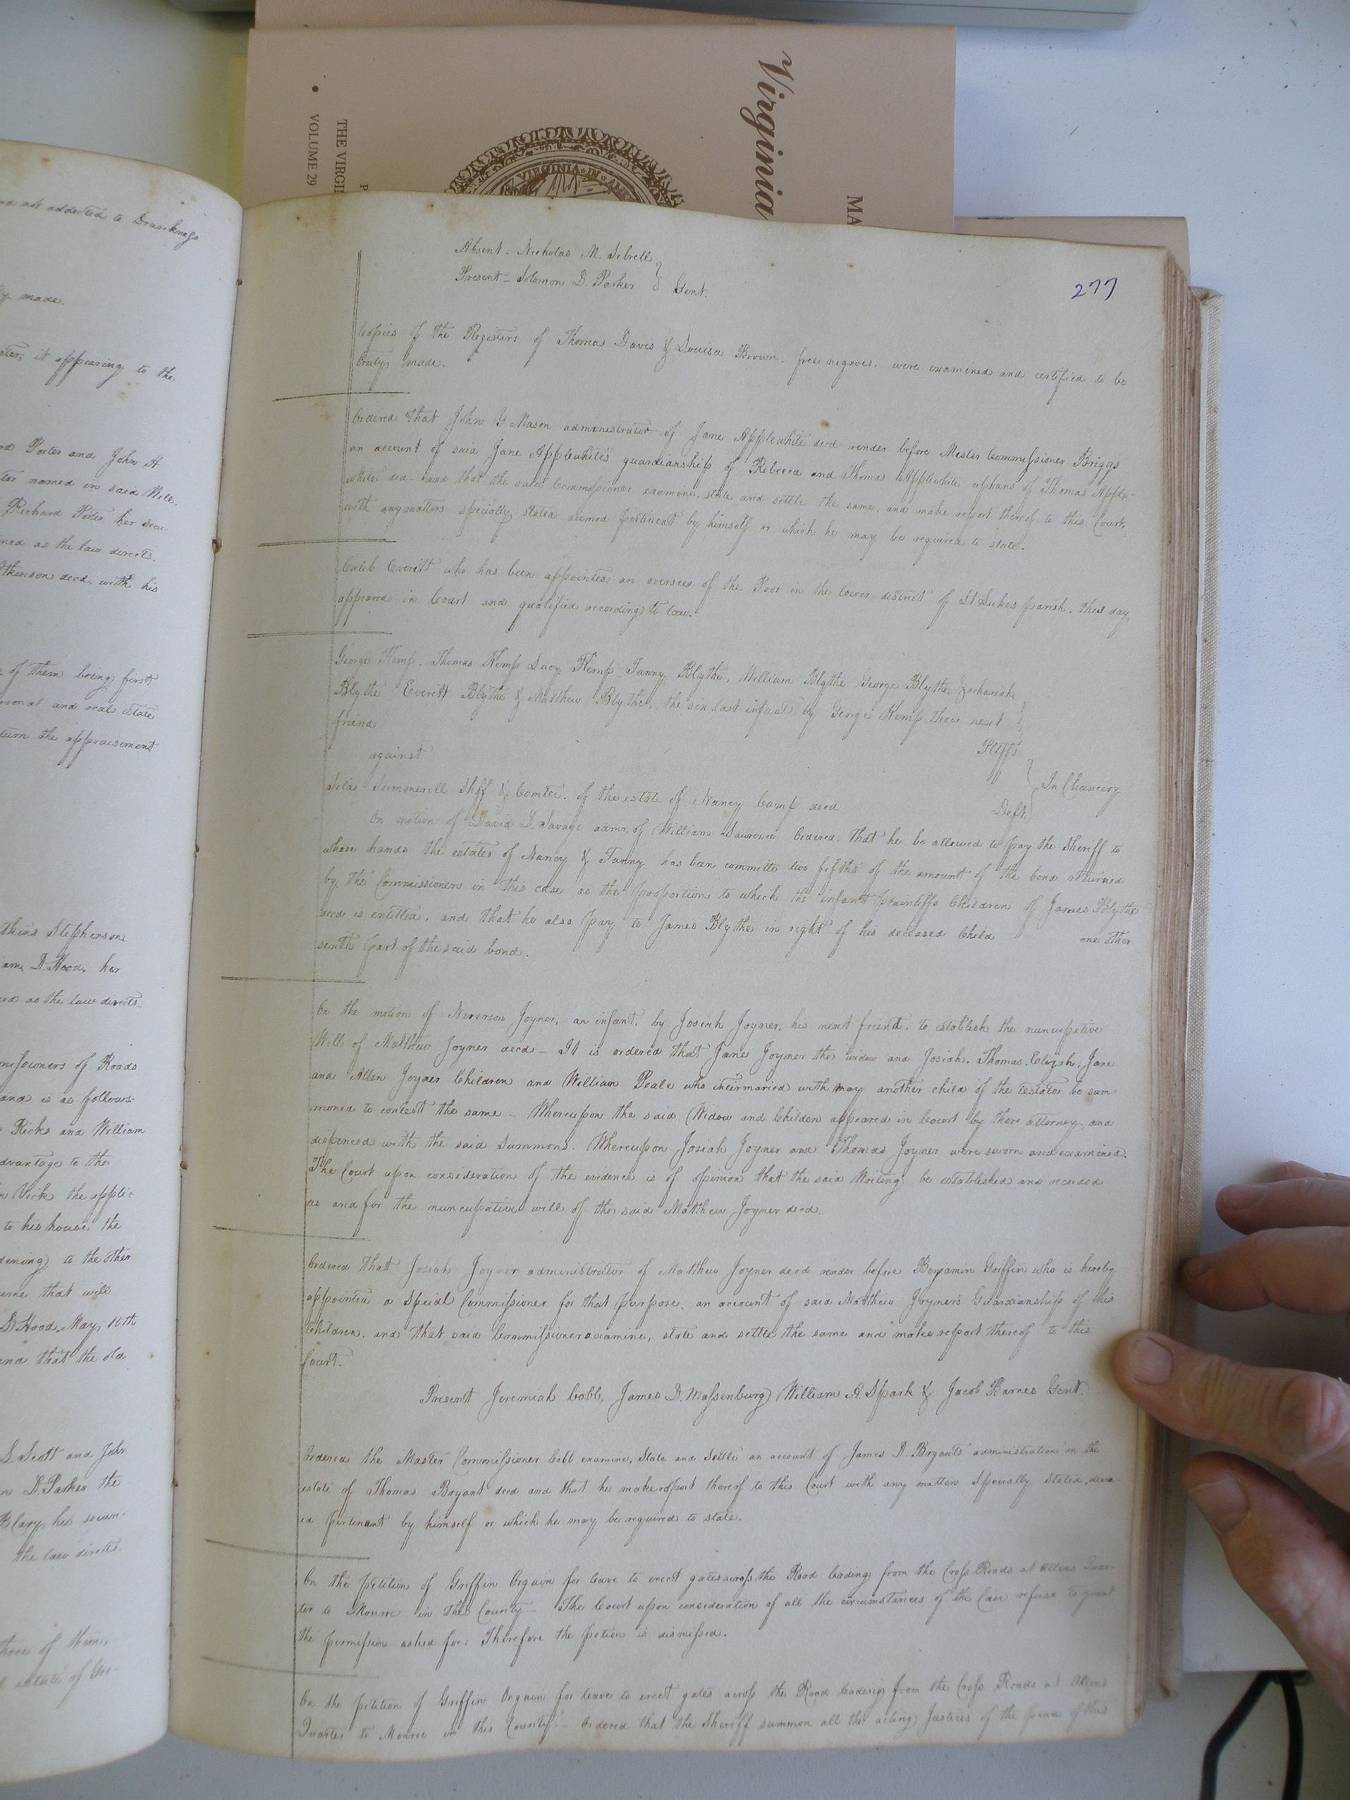 Virginia
MA
THE VIRGI
VOLUME 29
VIRGINIA IN
277
Absent - Nicholas M. Sebrell
Present - Solomon D. Parker } Gent.
Copies of the Registers of Thomas Davis & Louisa Brown, free negroes, were examined and certified to be
truly made.
Ordered that John G Mason administrator of Jane Applewhite decd render before Master Commissioner Briggs
an account of said Jane Applewhite's guardianship of Rebecca and Thomas Applewhite orphans of Thomas Apple-
white decd. and that the said Commissioner examine, state and settle the same, and make report thereof to this Court,
with any matters specially stated deemed pertinent by himself or which he may be required to state.
Caleb Everitt who has been appointed an overseer of the Poor in the lower district of St Lukes parish, this day
appeared in Court and qualified according to law.
George Kemp, Thomas Kemp Lucy Kemp Fanny Blythe, William Blythe George Blythe, Zachariah
Blythe Everitt Blythe & Matthew Blythe, the six last infants by George Kemp their next
friend
Pltffs
against
In Chancery
Silas Summerell Shff & Comtee. of the estate of Nancy Camp decd
Deft
On motion of David D. Savage admr. of William Lawrence Ordered that he be allowed to pay the Sheriff to
whose hands the estates of Nancy & Fanny has been committe two fifths of the amount of the bond returned
by the Commissioners in this case as the proportion to which the infant plaintiffs Children of James Blythe
decd is entitled, and that he also pay to James Blythe in right of his deceased Child one other
part of the said bond.
On the motion of Nicerson Joyner, an infant, by Josiah Joyner, his next friend, to establish the nuncupative
Will of Matthew Joyner decd - It is ordered that Jane Joyner the widow and Josiah, Thomas, Elizth, Jane
and Allen Joyner Children and William Peale who intermaried with may another child of the testator be sum-
moned to contest the same - Whereupon the said Widow and Children appeared in Court by there attorney, and
dispenced with the said Summons. Whereupon Josiah Joyner and Thomas Joyner were sworn and examined.
The Court upon consideration of the evidence is of opinion that the said Writing be established and recorded
as and for the nuncupative will of the said Matthew Joyner decd.
Ordered that Josiah Joyner administrator of Matthew Joyner decd render before Benjamin Griffin who is hereby
appointed a Special Commissioner for that purpose, an account of said Matthew Joyner's Guardianship of his
Children, and that said Commissioner examine, state and settle the same and make report thereof to this
Court.
Present Jeremiah Cobb, James D. Massenburg, William A. Spark & Jacob Barnes Gent.
Ordered the Master Commissioner Cobb examine, State and Settle an account of James D Bryants administration on the
estate of Thomas Bryant decd and that he make report thereof to this Court with any matters Specially Stated, deem-
ed pertinent by himself or which he may be required to state.
On the petition of Griffin Orgain for leave to erect gates across the Road leading from the Cross Roads at Allens Quar-
ter to Monroe in this County - The Court upon consideration of all the circumstances of the Case refuse to grant
the permission asked for: Therefore the petion is dismissed.
On the petition of Griffin Orgain for leave to erect gates across the Road leading from the Cross Roads at Allens
Quarter to Monroe in this County - Ordered that the Sheriff summon all the acting Justices of the peace of this
are not addicted to Drunkenness
ly made.
it appearing to the
Porter and John H
named in said Will.
Richard Porter her
ned as the law directs.
Atkinson decd. with his
of them being first
sonal and real estate
turn the appraisement
Atkins Stephenson
am D. Hood, her
as the law directs.
missioners of Roads
and is as follows:
Ricks and William
dvantage to the
Vick the appli-
to his house the
dening, to the other
that will
D Hood, May, 10th
and that the old
S. Scott and John
D. Parker the
Blay, his
the law directs.
three of them,
estate of